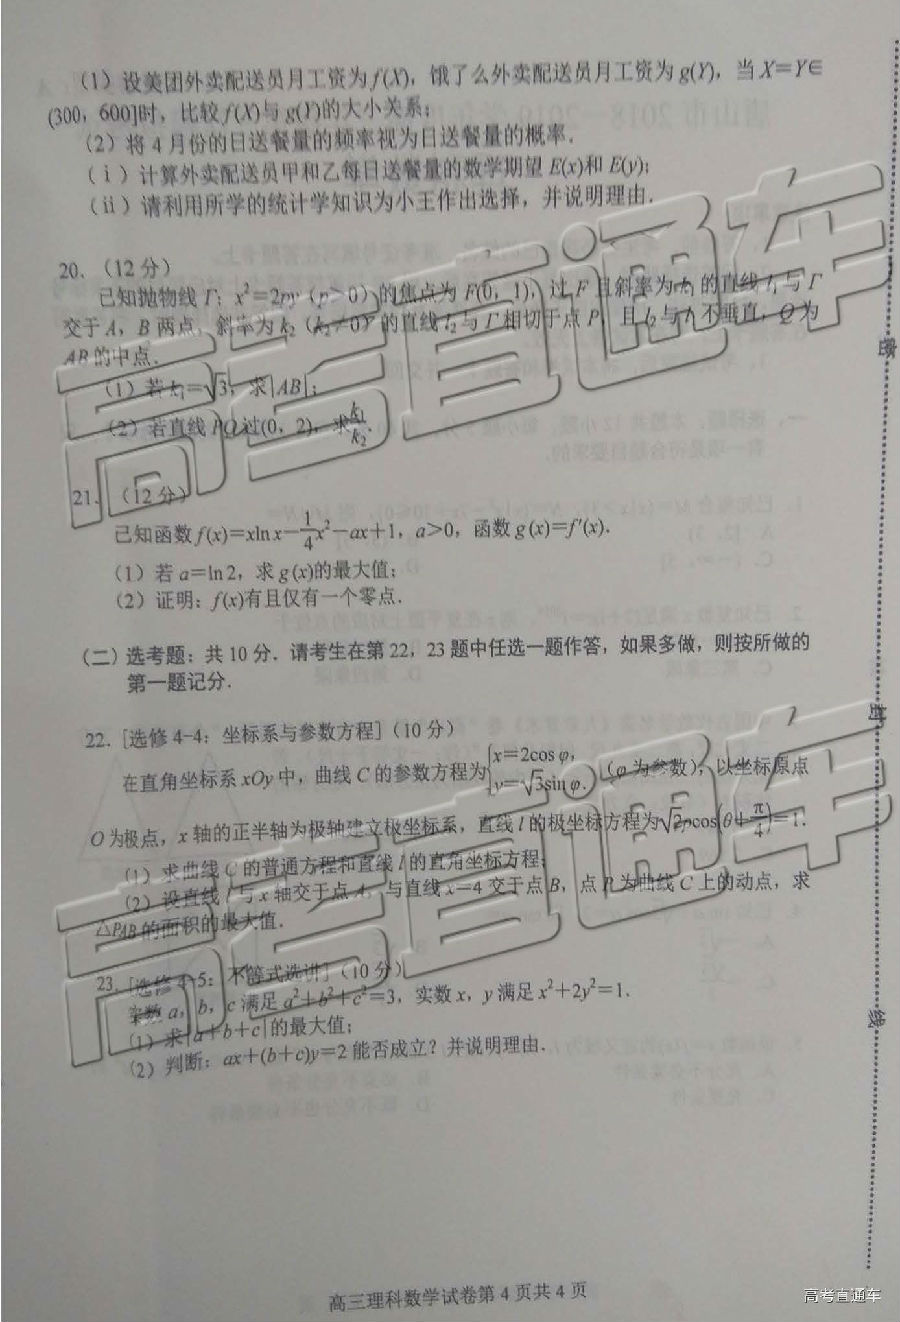 (1)设美团外卖配送员月工资为f(X),饿了么外卖配送员月工资为g(Y),当X=Y∈
(300,600]时,比较f(X)与g(Y)的大小关系;
(2)将4月份的日送餐量的频率视为日送餐量的概率.
(ⅰ)计算外卖配送员甲和乙每日送餐量的数学期望E(x)和E(y);
(ⅱ)请利用所学的统计学知识为小王作出选择,并说明理由.
20.(12分)
已知抛物线Γ:x²=2py(p>0)的焦点为F(0,1),过F且斜率为k₁的直线l₁与Γ
交于A,B两点,斜率为k₂(k₂≠0)的直线l₂与Γ相切于点P,且l₂与l₁不垂直,Q为
AB的中点.
(1)若k₁=√3,求|AB|;
(2)若直线PQ过(0,2),求k₁/k₂.
21.(12分)
已知函数f(x)=xln x-1/4x²-ax+1,a>0,函数g(x)=f′(x).
(1)若a=ln 2,求g(x)的最大值;
(2)证明:f(x)有且仅有一个零点.
(二)选考题:共10分.请考生在第22,23题中任选一题作答,如果多做,则按所做的
第一题记分.
22.[选修4-4:坐标系与参数方程](10分)
在直角坐标系xOy中,曲线C的参数方程为{x=2cos φ, y=√3sin φ.(φ为参数),以坐标原点
O为极点,x轴的正半轴为极轴建立极坐标系,直线l的极坐标方程为√2ρcos(θ+π/4)=1.
(1)求曲线C的普通方程和直线l的直角坐标方程;
(2)设直线l与x轴交于点A,与直线x=4交于点B,点P为曲线C上的动点,求
△PAB的面积的最大值.
23.[选修4-5:不等式选讲](10分)
实数a,b,c满足a²+b²+c²=3,实数x,y满足x²+2y²=1.
(1)求|a+b+c|的最大值;
(2)判断:ax+(b+c)y=2能否成立?并说明理由.
高三理科数学试卷第4页共4页
密
封
线
高考直通车
高考直通车
高考直通车